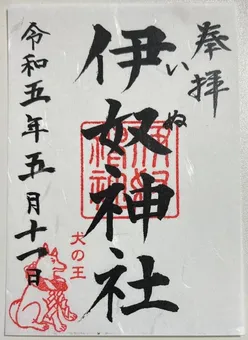 奉拝
伊奴神社
いぬ
令和五年五月十一日
犬の王